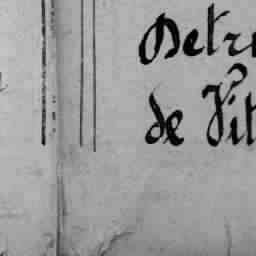 Detri
de Vit